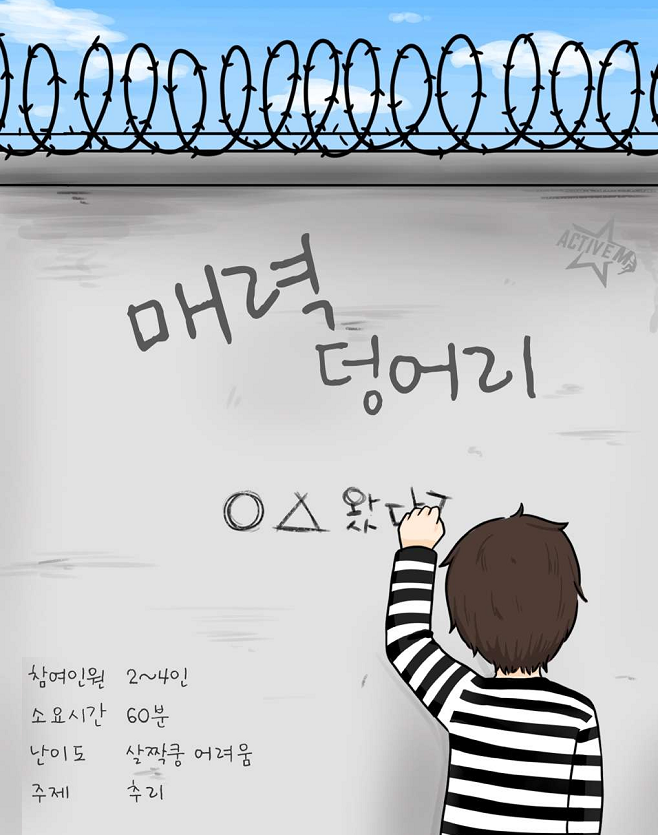 ACTIVE M
매력
덩어리
○△ 왔다
참여인원 2~4인
소요시간 60분
난이도 살짝쿵 어려움
주제 추리